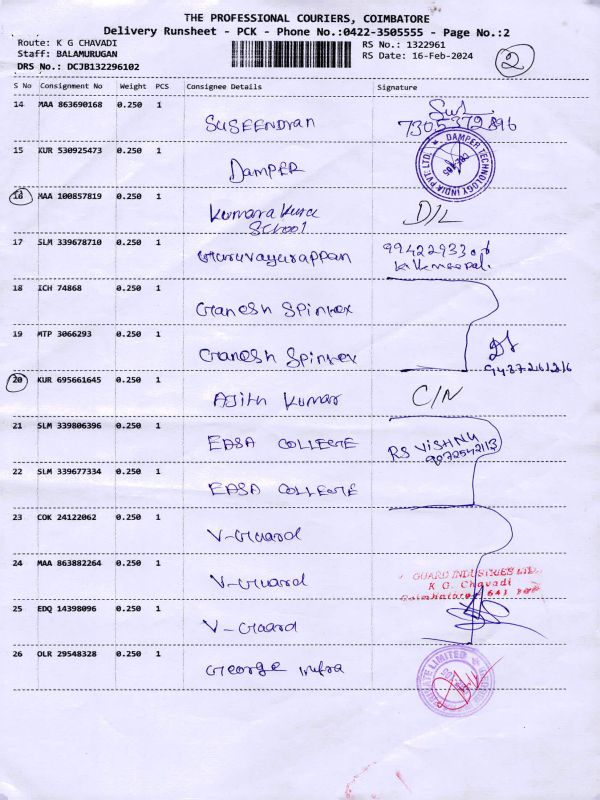 THE PROFESSIONAL COURIERS, COIMBATORE
Delivery Runsheet - PCK - Phone No.:0422-3505555 - Page No.:2
Route: K G CHAVADI
Staff: BALAMURUGAN
DRS No.: DCJB132296102
RS No.: 1322961
RS Date: 16-Feb-2024
2
S No Consignment No Weight PCS Consignee Details Signature
14 MAA 863690168 0.250 1
Suseendran
7305372896
15 KUR 530925473 0.250 1
Damper
DAMPER TECHNOLOGY INDIA PVT. LTD.
16 MAA 100857819 0.250 1
School
D/L
17 SLM 339678710 0.250 1
Guruvayurappan
18 ICH 74868 0.250 1
Ganesh Spintex
19 MTP 3066293 0.250 1
Ganesh Spintex
20 KUR 695661645 0.250 1
Ajith Kumar C/N
21 SLM 339806396 0.250 1
EASA COLLEGE RS VISHNU
9072542113
22 SLM 339677334 0.250 1
EASA COLLEGE
23 COK 24122062 0.250 1
V-Guard
24 MAA 863882264 0.250 1
V-Guard
GUARD INDUSTRIES LTD.
K G. Chavadi
Coimbatore 641
25 EDQ 14398096 0.250 1
V-Guard
26 OLR 29548328 0.250 1
George infra
LIMITED